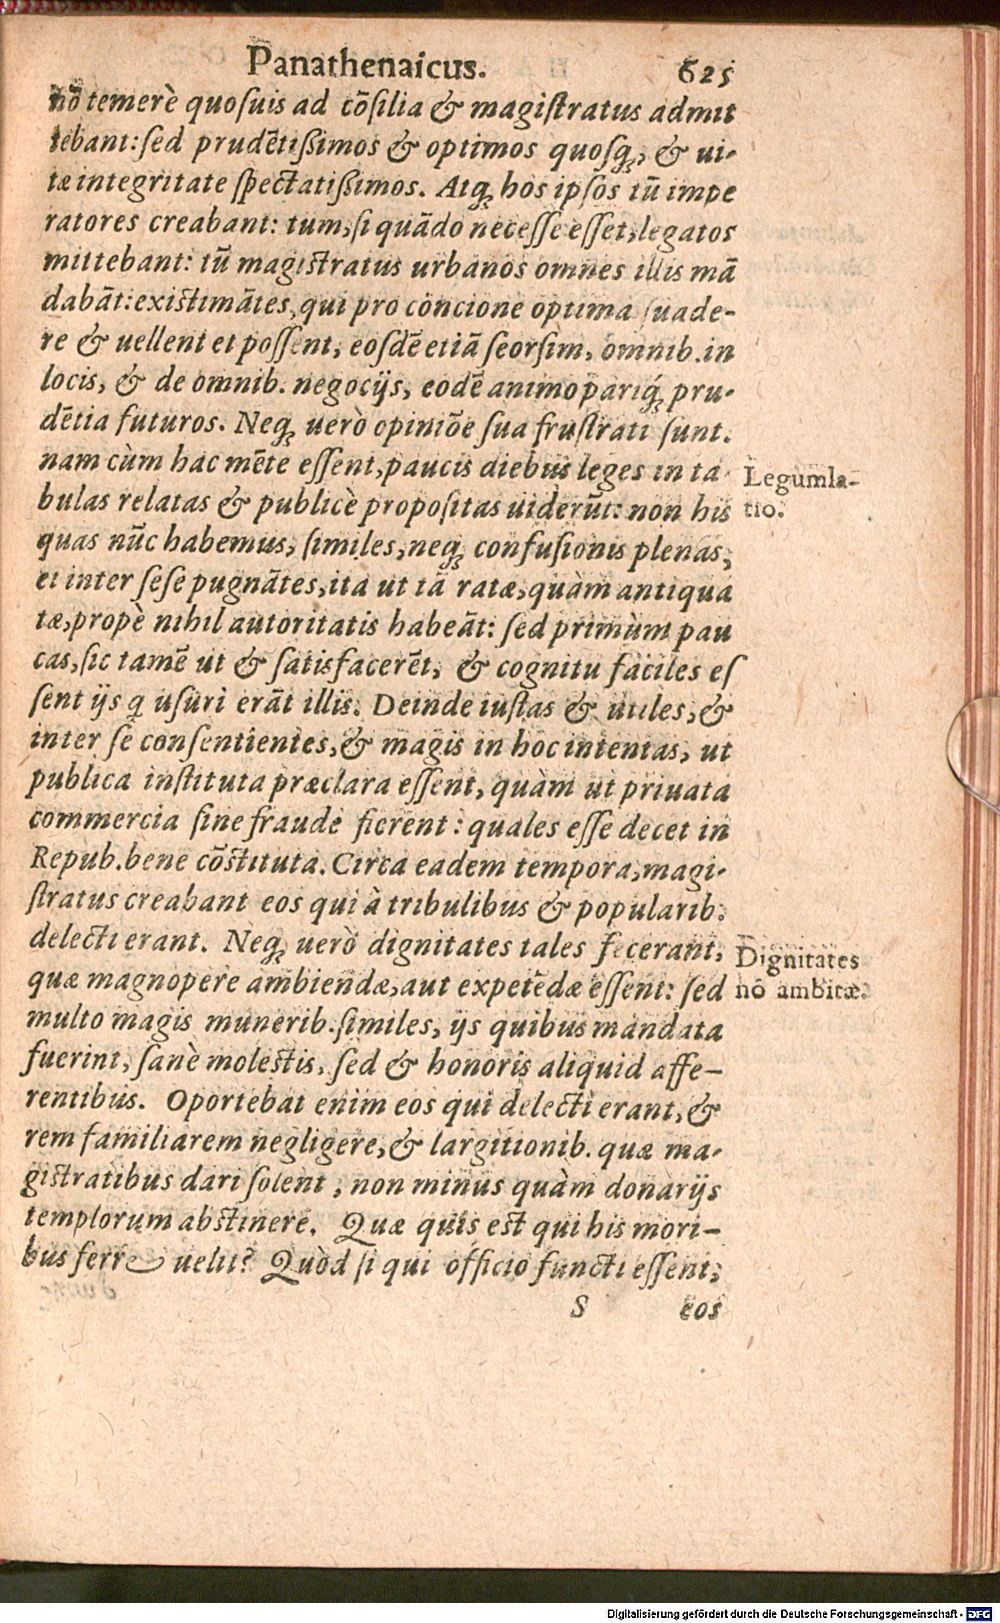 Panathenaicus. 625
nō temerè quosuis ad cōsilia & magiſtratus admit
tebant: ſed prudētißimos & optimos quosq́;, & ui-
tæ integritate ſpectatißimos. Atq; hos ipſos tū impe
ratores creabant: tum, ſi quādo neceſſe eſſet, legatos
mittebant: tū magiſtratus urbanos omnes illis mā
dabāt: exiſtimātes, qui pro concione optima ſuade-
re & uellent et poſſent, eoſdē etiā ſeorſim, omnib. in
locis, & de omnib. negocijs, eodē animo pariq́; pru-
dētia futuros. Neq; uerò opiniōe ſua fruſtrati ſunt.
nam cùm hac mēte eſſent, paucis diebus leges in ta-
bulas relatas & publicè propoſitas uiderūt: non his
Legumla-
tio.
quas nūc habemus, ſimiles, neq; confuſionis plenas,
et inter ſeſe pugnātes, ita ut tā ratæ, quàm antiqua
tæ, propè nihil autoritatis habeāt: ſed primùm pau
cas, ſic tamē ut & ſatisfacerēt, & cognitu faciles eſ
ſent ijs q̃ uſuri erāt illis. Deinde iuſtas & utiles, &
inter ſe conſentientes, & magis in hoc intentas, ut
publica inſtituta præclara eſſent, quàm ut priuata
commercia ſine fraude fierent: quales eſſe decet in
Repub. bene cōſtituta. Circa eadem tempora, magi-
ſtratus creabant eos qui à tribulibus & popularib.
delecti erant. Neq; uerò dignitates tales fecerant,
Dignitates
nō ambitæ.
quæ magnopere ambiendæ, aut expetēdæ eſſent: ſed
multo magis munerib. ſimiles, ijs quibus mandata
fuerint, ſanè moleſtis, ſed & honoris aliquid affe-
rentibus. Oportebat enim eos qui delecti erant, &
rem familiarem negligere, & largitionib. quæ ma-
giſtratibus dari ſolent, non minus quàm donarijs
templorum abſtinere. Quæ quis eſt qui his mori-
bus ferre uelit? Quòd ſi qui officio functi eſſent,
S eos
Digitalisierung gefördert durch die Deutsche Forschungsgemeinschaft - DFG